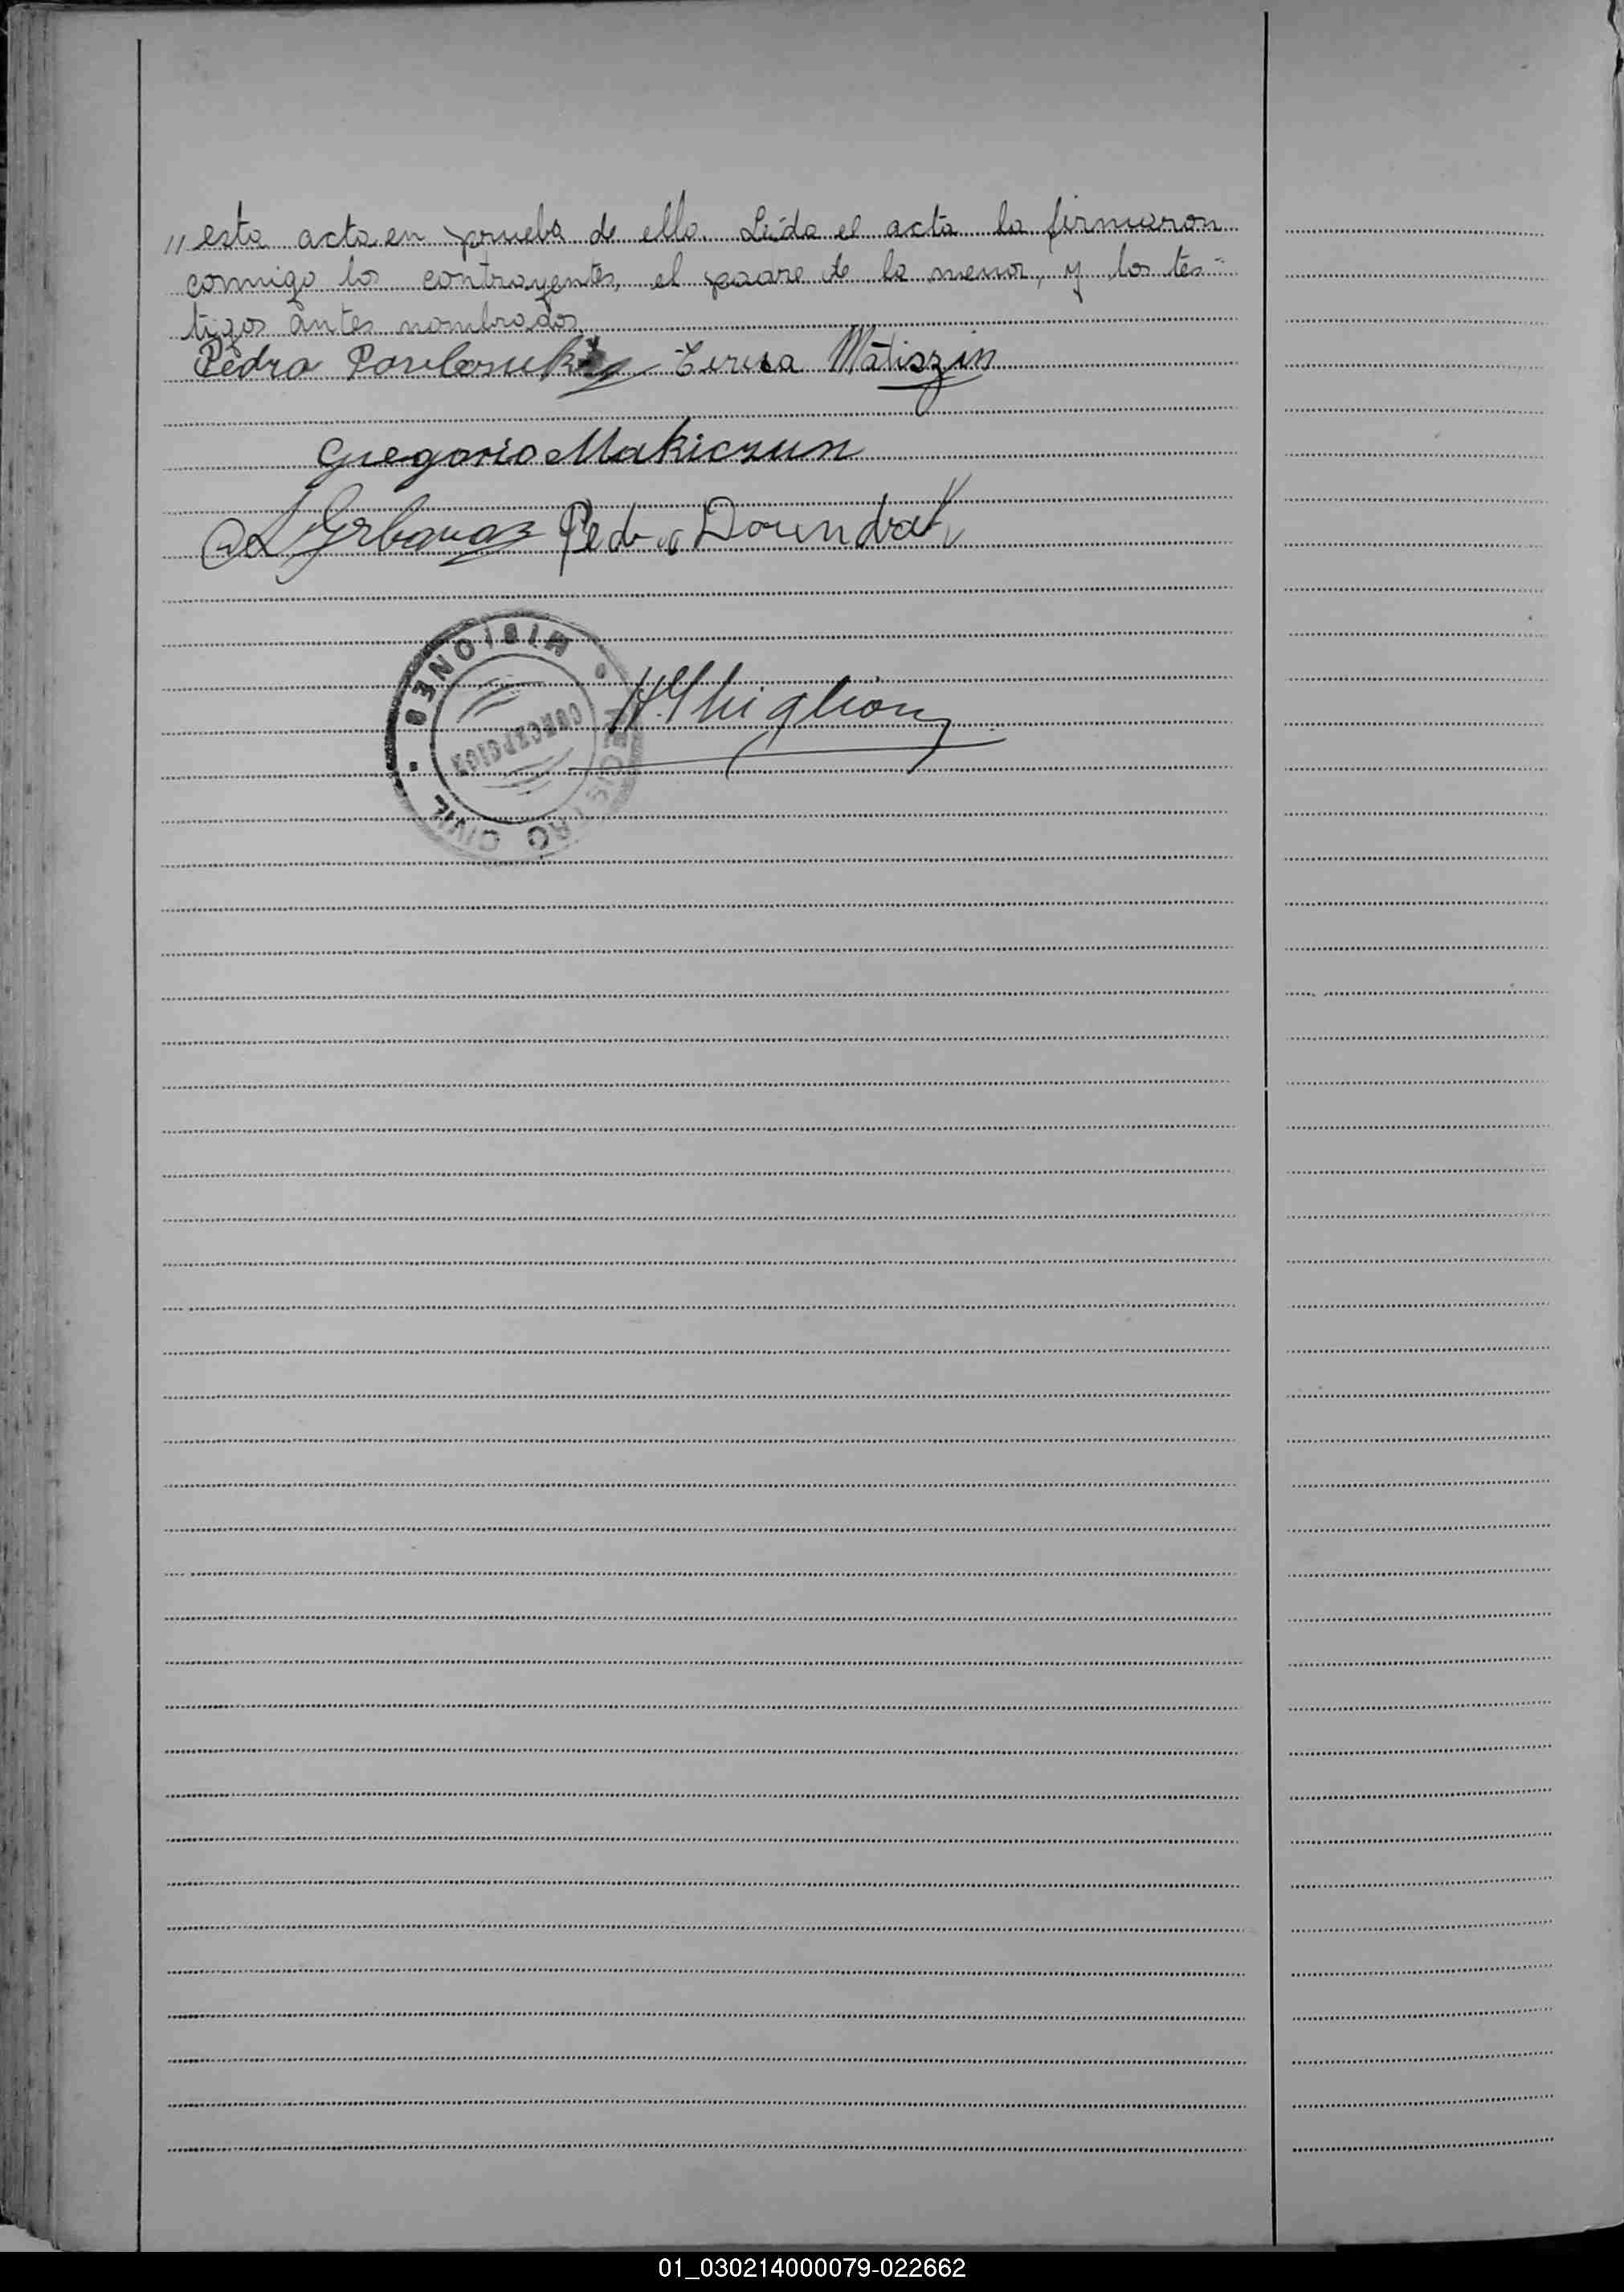 " esta acta en prueba de ello. Leída el acta la firmaron
conmigo los contrayentes, el padre de la menor, y los tes-
tigos antes nombrados.
Pedro Teresa Matiszin
Gregorio Makiczun
Pedro
MISIONES
CONCEPCION
REGISTRO CIVIL
01_030214000079-022662